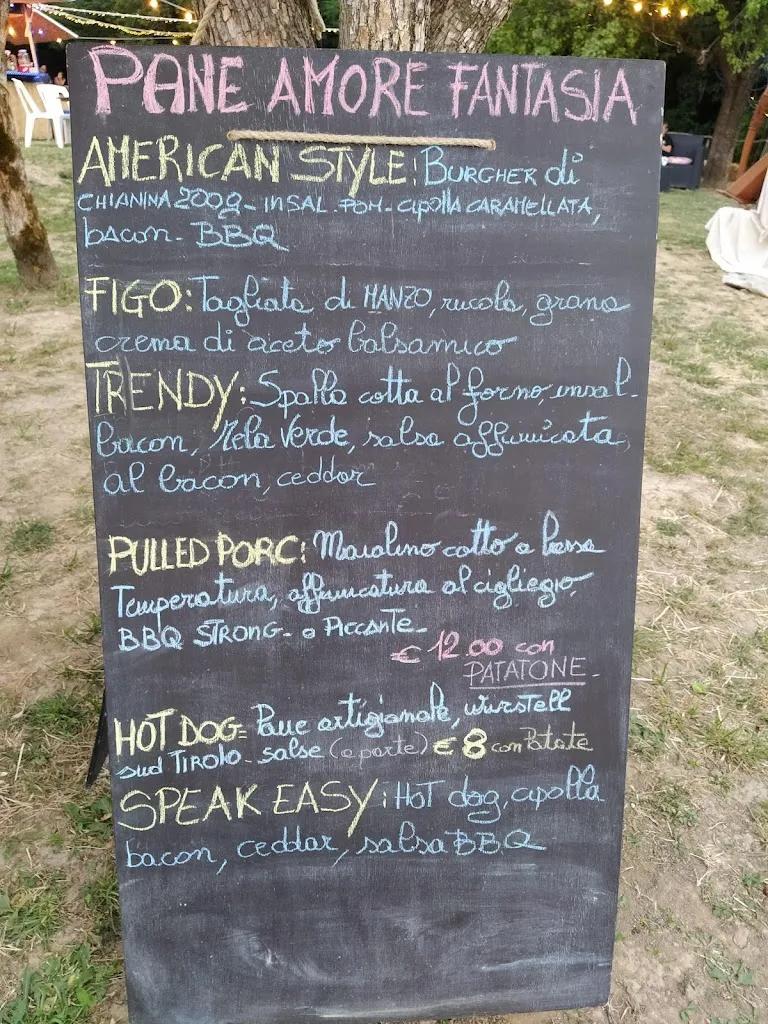 PANE AMORE FANTASIA
AMERICAN STYLE: BURGHER di
CHIANINA 200g - INSAL. POM - CIPOLLA CARAMELLATA,
bacon - BBQ
FIGO: Tagliata di MANZO, rucola, grana
crema di aceto balsamico
TRENDY: Spalla cotta al forno, insal.
bacon, Mela Verde, salsa affumicata
al bacon, ceddar
PULLED PORC: Maialino cotto a bassa
Temperatura, affumicatura al cigliegio,
BBQ STRONG - o PiccANTE -
€ 12.00 con
PATATONE -
HOT DOG = Pane artigianale, wurstell
sud TIROLO - salse (a parte) € 8 con Patate
SPEAK EASY: HOT dog, cipolla
bacon, ceddar, salsa BBQ